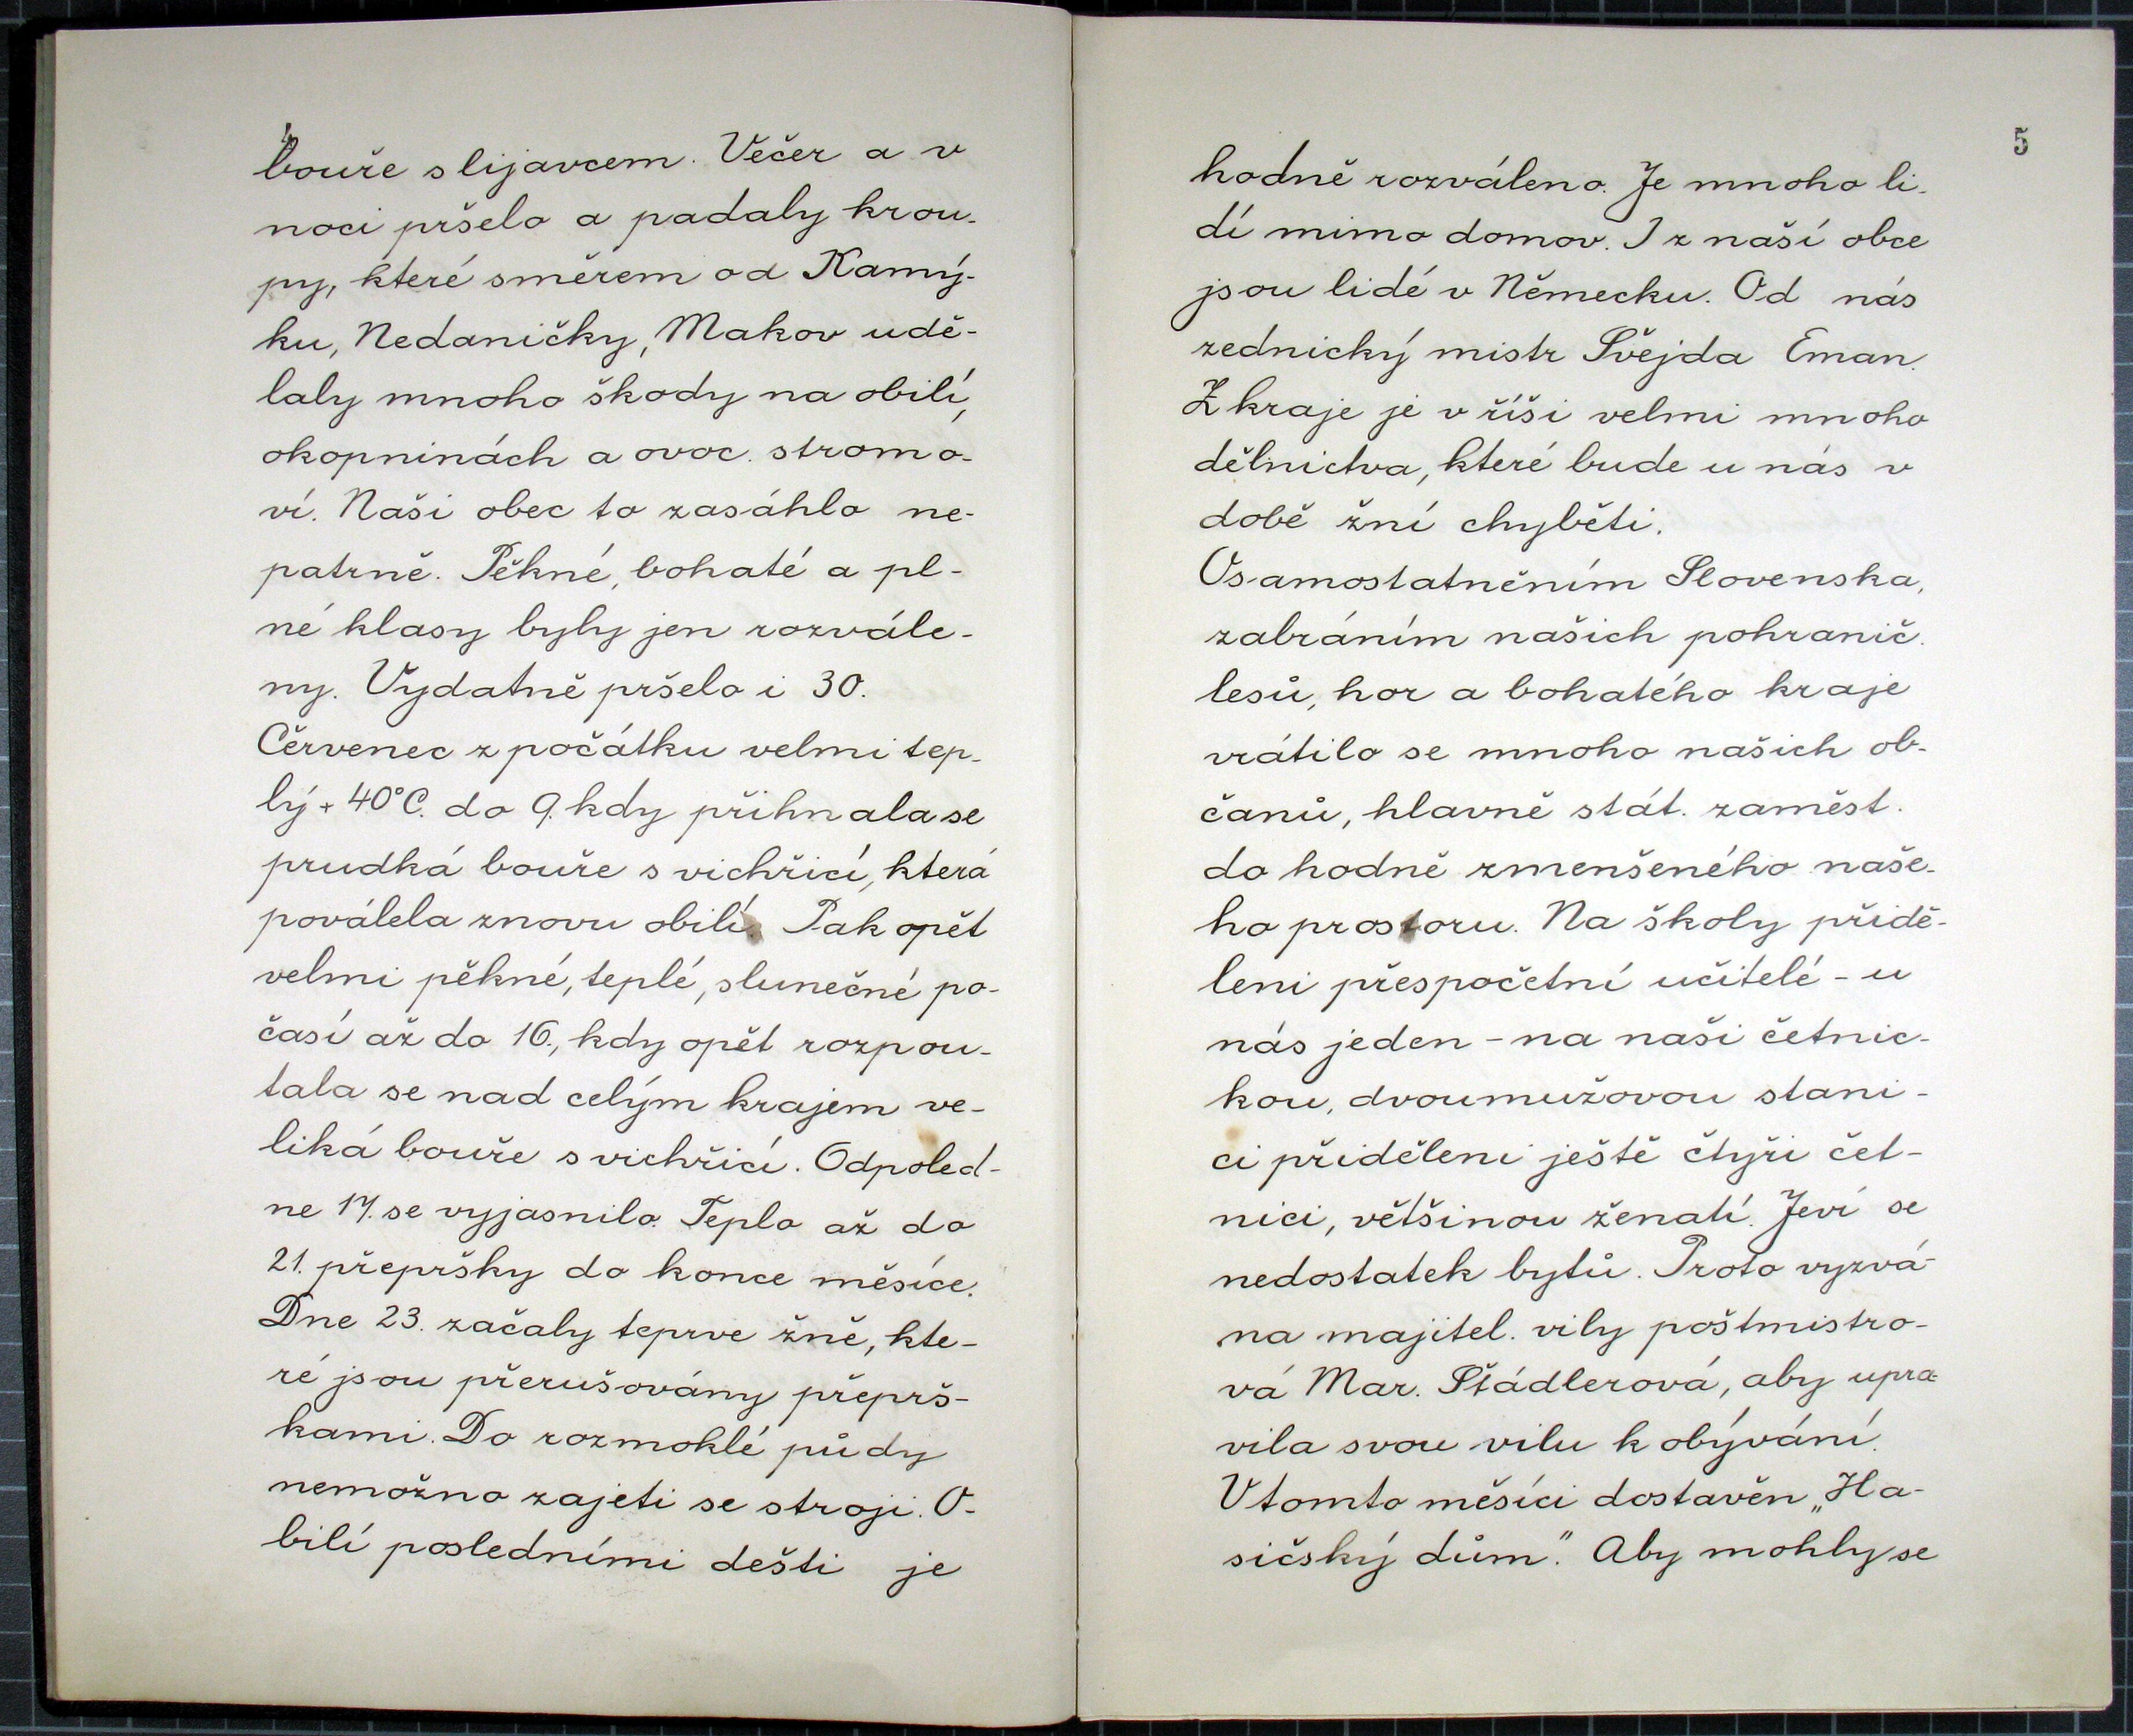 bouře s lijavcem. Večer a v
noci pršelo a padaly krou-
py, které směrem od Kamý-
ku, Nedaničky, Makov udě-
laly mnoho škody na obilí,
okopninách a ovoc. stromo-
ví. Naši obec to zasáhlo ne-
patrně. Pěkné, bohaté a pl-
né klasy byly jen rozvále-
ny. Vydatně pršelo i 30.
Červenec z počátku velmi tep-
lý + 40°C. do 9. kdy přihnala se
prudká bouře s vichřicí, která
poválela znovu obilí. Pak opět
velmi pěkné, teplé, slunečné po-
časí až do 16., kdy opět rozpou-
tala se nad celým krajem ve-
liká bouře s vichřicí. Odpoled-
ne 17. se vyjasnilo. Teplo až do
21. přepršky do konce měsíce.
Dne 23. začaly teprve žně, kte-
ré jsou přerušovány přeprš-
kami. Do rozmoklé půdy
nemožno zajeti se stroji. O-
bilí posledními dešti je
5
hodně rozváleno. Je mnoho li-
dí mimo domov. I z naší obce
jsou lidé v Německu. Od nás
zednický mistr Švejda Eman.
Z kraje je v říši velmi mnoho
dělnictva, které bude u nás v
době žní chyběti.
Osamostatněním Slovenska,
zabráním našich pohranič.
lesů, hor a bohatého kraje
vrátilo se mnoho našich ob-
čanů, hlavně stát. zaměst.
do hodně zmenšeného naše-
ho prostoru. Na školy přidě-
leni přespočetní učitelé - u
nás jeden - na naši četnic-
kou, dvoumužovou stani-
ci přiděleni ještě čtyři čet-
níci, většinou ženatí. Jeví se
nedostatek bytů. Proto vyzvá-
na majitel. vily poštmistro-
vá Mar. Štádlerová, aby upra-
vila svou vilu k obývání.
V tomto měsíci dostavěn „Ha-
sičský dům". Aby mohly se